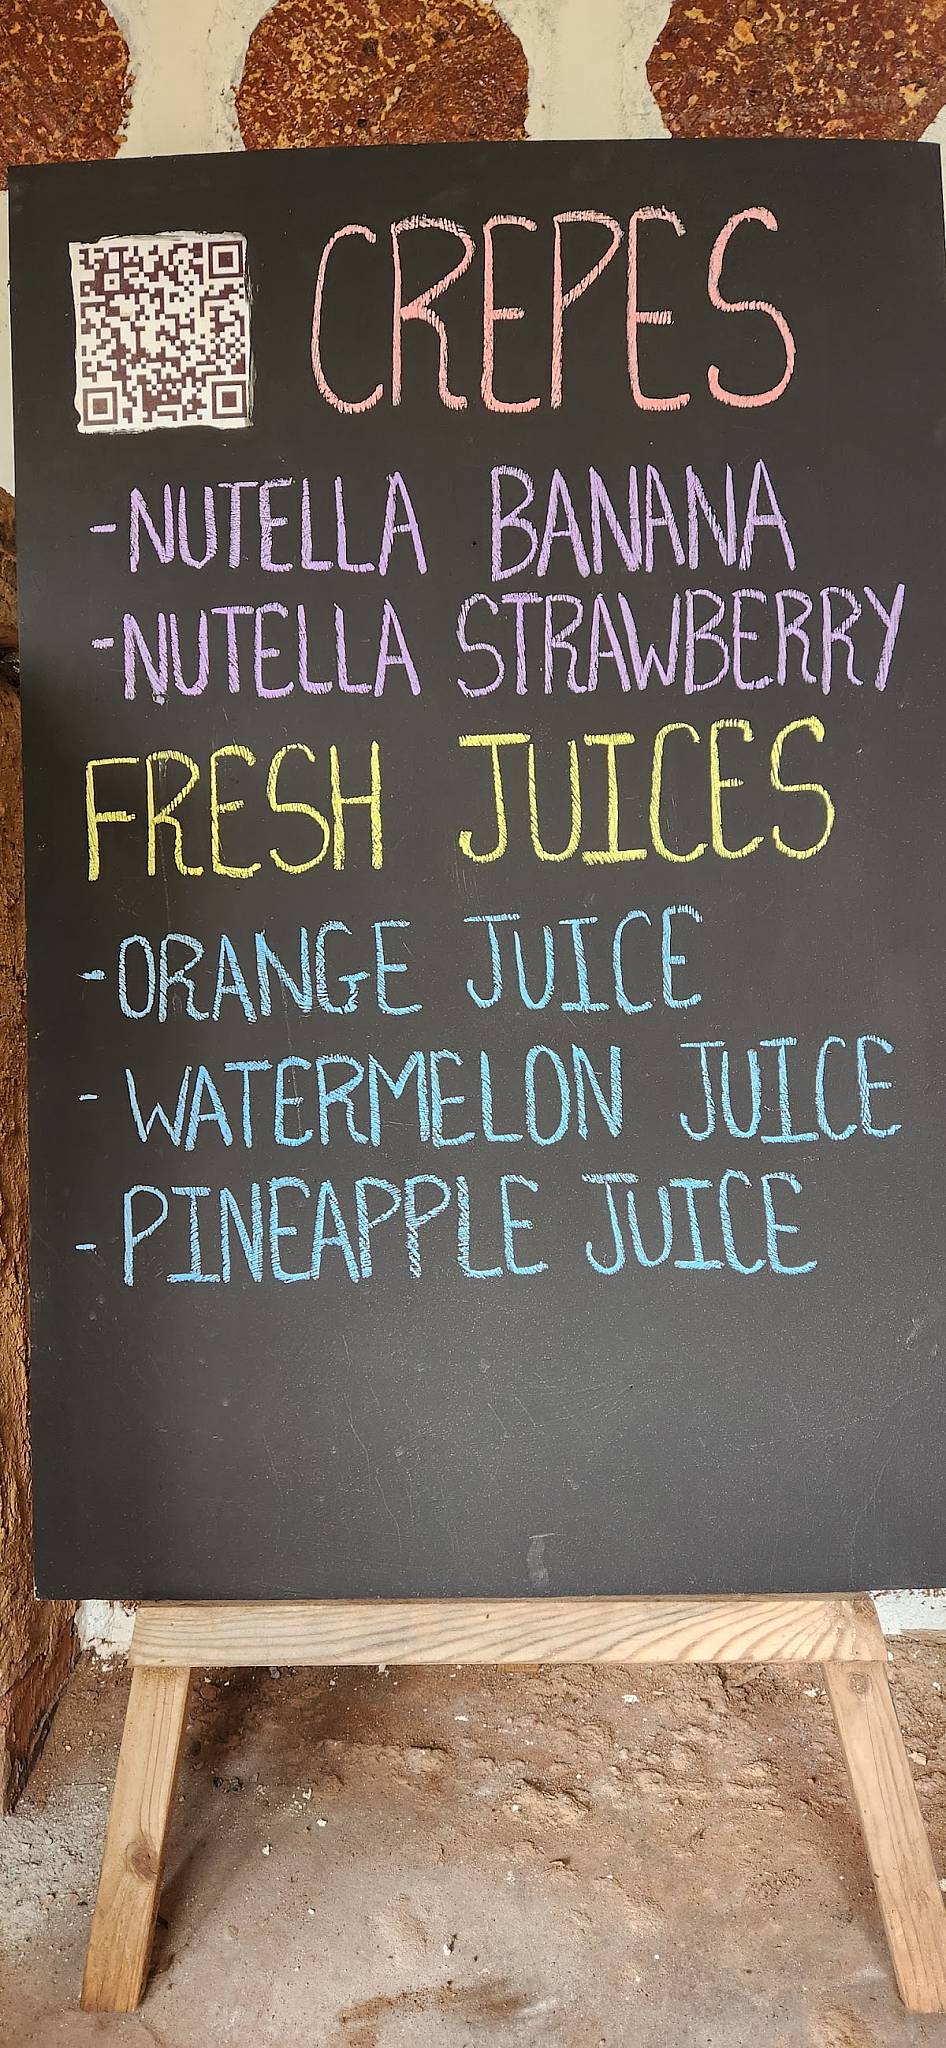 CREPES
-NUTELLA BANANA
-NUTELLA STRAWBERRY
FRESH JUICES
-ORANGE JUICE
- WATERMELON JUICE
- PINEAPPLE JUICE